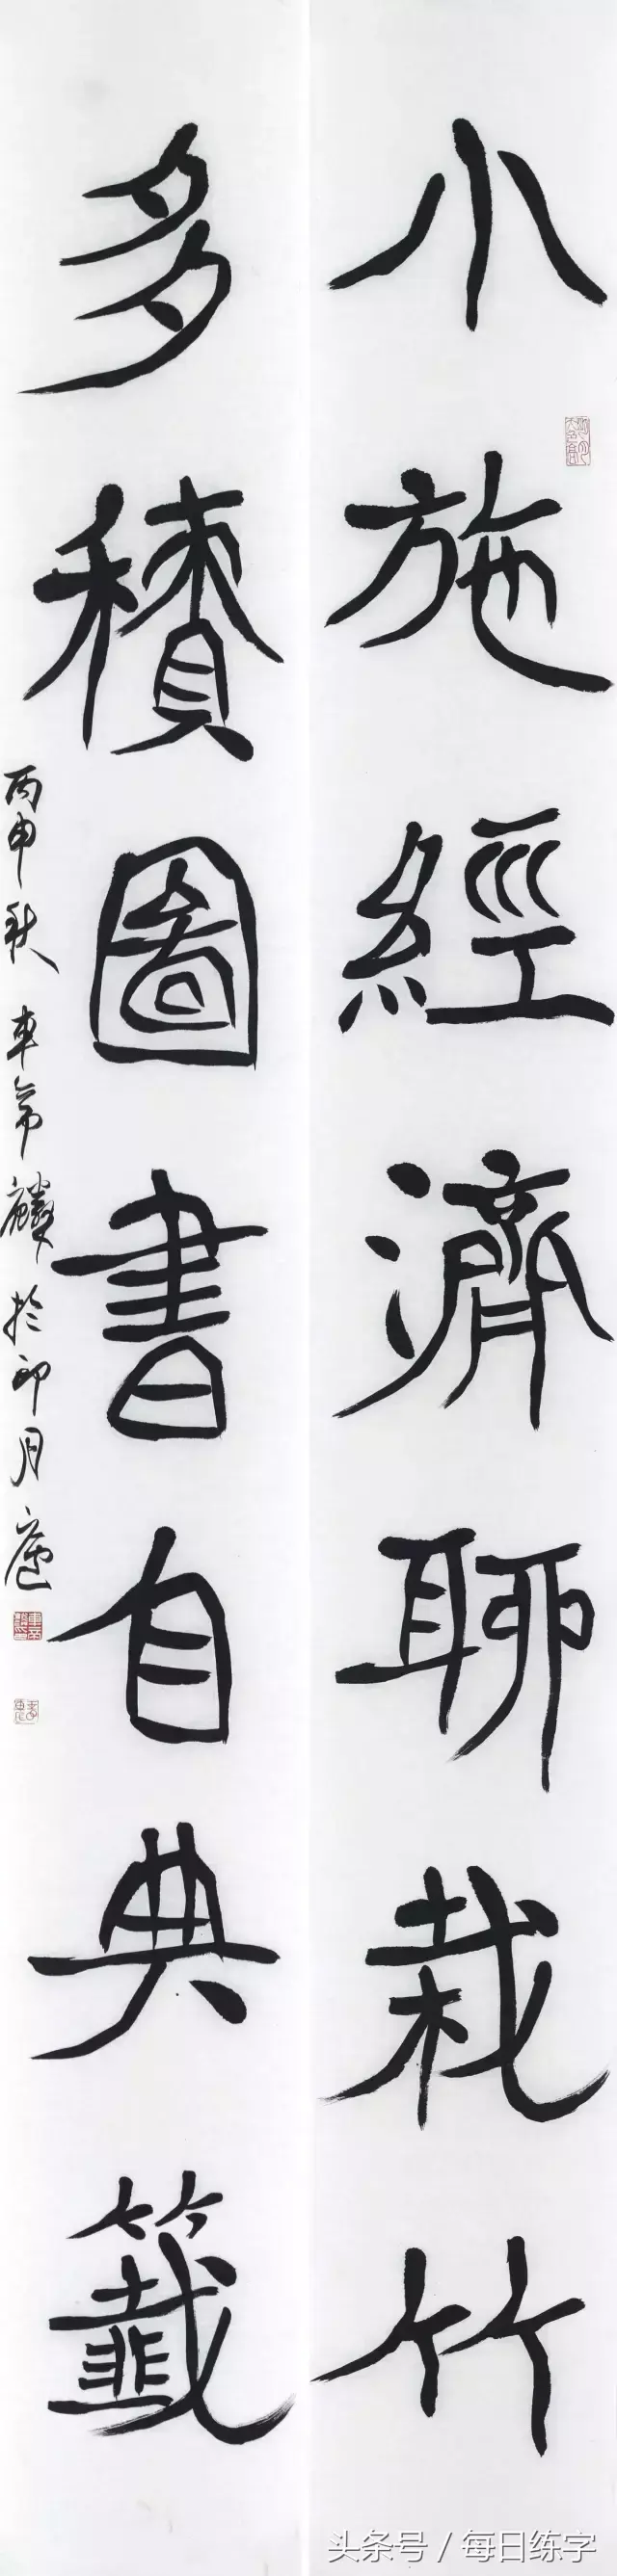 小施經濟聊栽竹
多積圖書自典籤
丙申秋 車帝麟於印月廬
头条号 / 每日练字